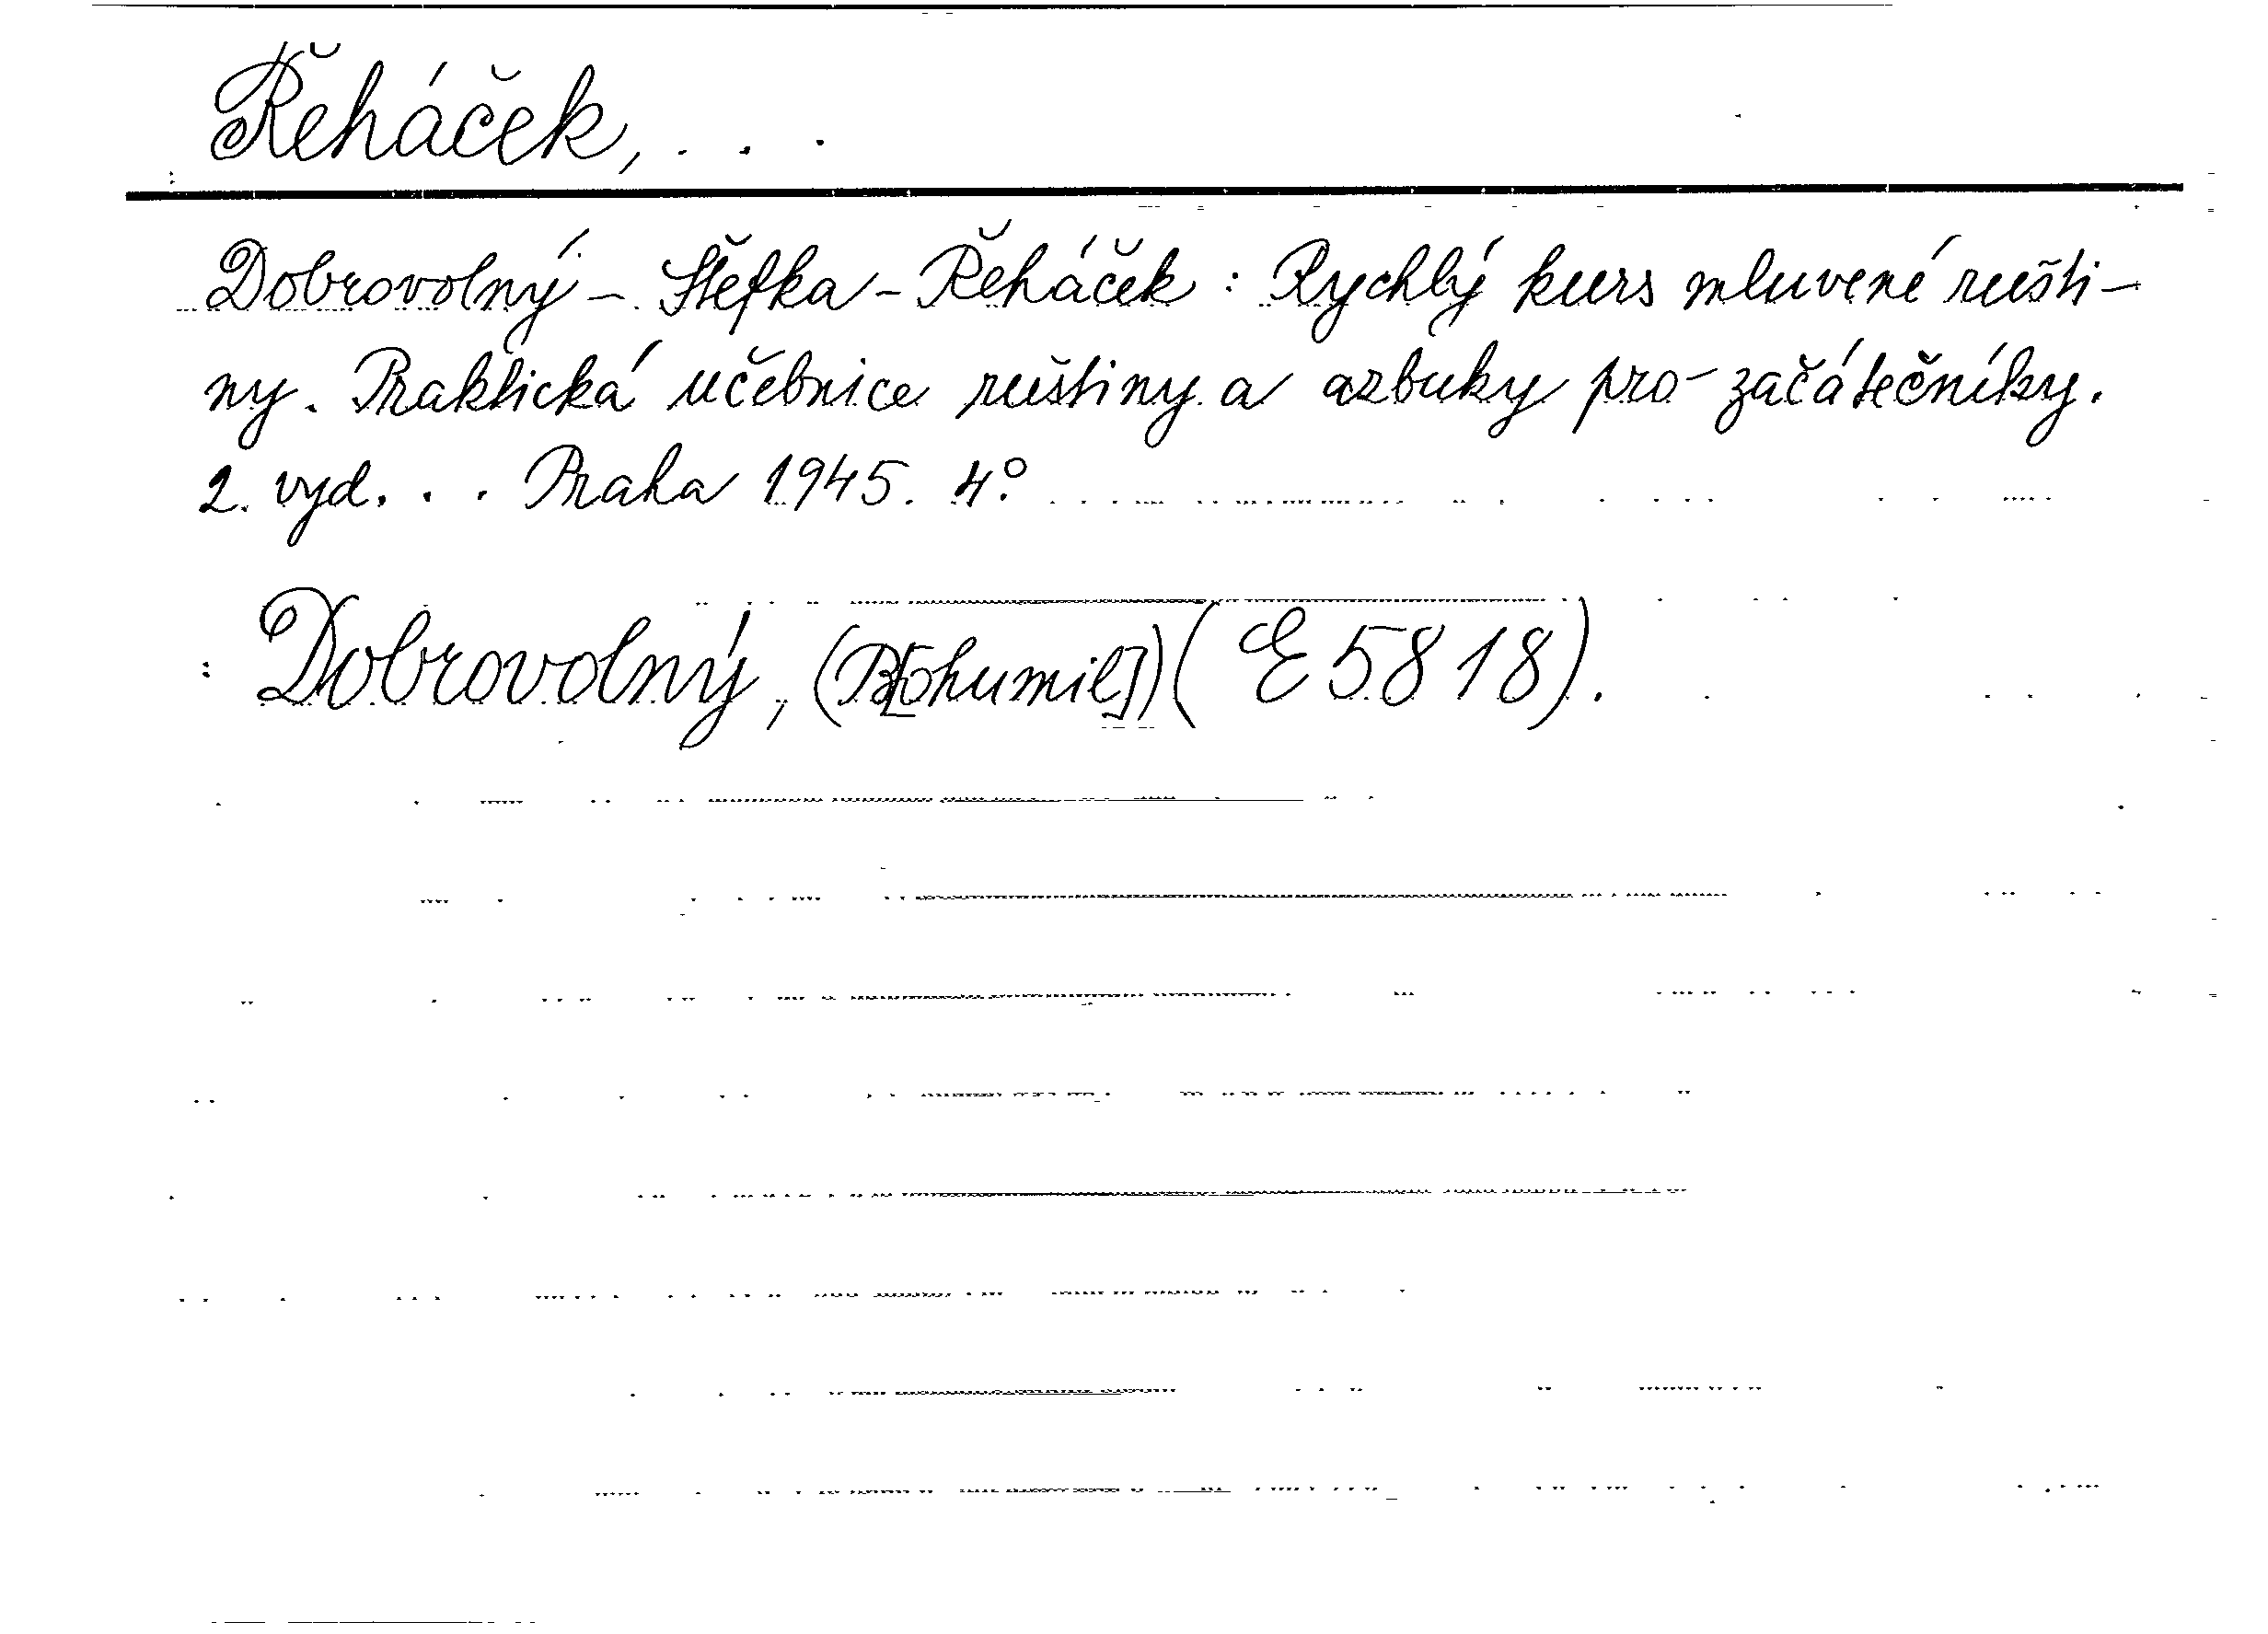 Řeháček, . . .
Dobrovolný - Štefka - Řeháček : Rychlý kurs mluvené rušti-
ny. Praktická učebnice ruštiny a azbuky pro začátečníky.
2. vyd. . . Praha 1945. 4°.
: Dobrovolný, (B[ohumil]) (E 5818).